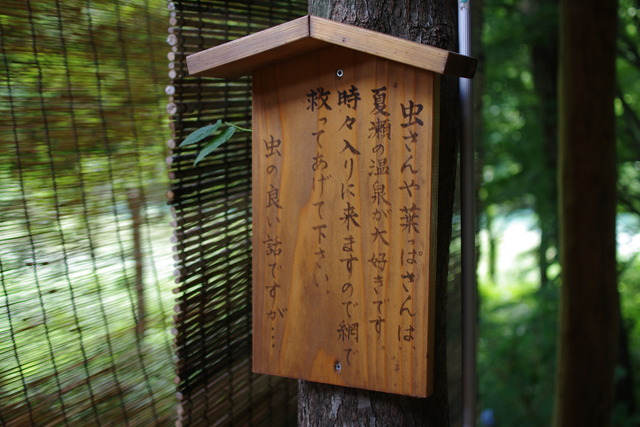 虫さんや葉っぱさんは、
夏瀬の温泉が大好きです
時々入りに来ますので網で
救ってあげて下さい、
虫の良い話ですが…